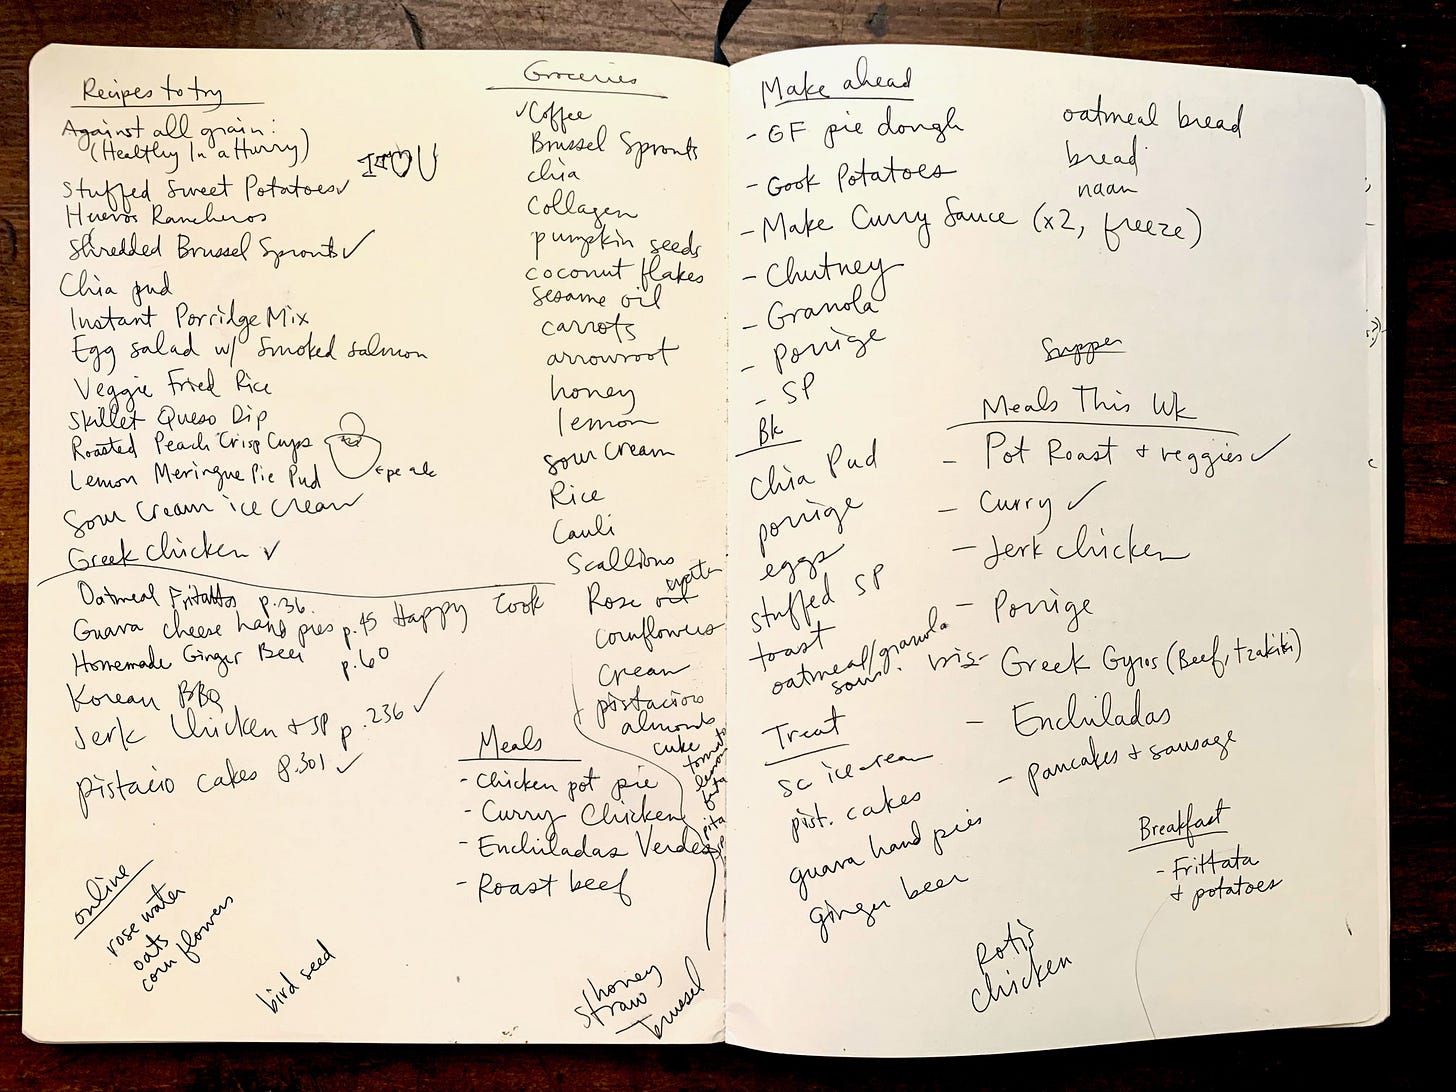 Recipes to try
Against all grain:
(Healthy In a Hurry)
I ♡ U
Stuffed Sweet Potatoes ✓
Huevos Rancheros
Shredded Brussel Sprouts ✓
Chia pud
Instant Porridge Mix
Egg salad w/ Smoked salmon
Veggie Fried Rice
Skillet Queso Dip
Roasted Peach Crisp Cups
Lemon Meringue Pie Pud
Sour Cream ice cream
Greek chicken ✓
Oatmeal Frittatas p.36.
Guava cheese hand pies p.45 Happy Cook
Homemade Ginger Beer p.60
Korean BBQ
Jerk Chicken + SP p.236 ✓
pistacio cakes p.301 ✓
online
rose water
oats
corn flowers
bird seed
Groceries
✓Coffee
Brussel Sprouts
chia
Collagen
pumpkin seeds
coconut flakes
sesame oil
carrots
arrowroot
honey
lemon
sour cream
Rice
Cauli
Scallions
Rose oil water
Cornflowers
Cream
pistacios
almonds
cuke
tomato
lemon
feta
pita
Meals
- Chicken pot pie
- Curry Chicken
- Enchiladas Verdes
- Roast beef
honey
straw
brussel
Make ahead
- GF pie dough
- Cook Potatoes
- Make Curry Sauce (x2, freeze)
- Chutney
- Granola
- porrige
- SP
oatmeal bread
bread
naan
Bk
Chia Pud
porrige
eggs
stuffed SP
toast
oatmeal/granola
Treat
sc ice-ream
pist. cakes
guava hand pies
ginger beer
Supper
Meals This Wk
- Pot Roast + veggies ✓
- Curry ✓
- Jerk chicken
- Porrige
- Greek Gyros (Beef, tzakiki)
- Enchiladas
- pancakes + sausage
Breakfast
- Frittata
+ potatoes
Rotis
chicken